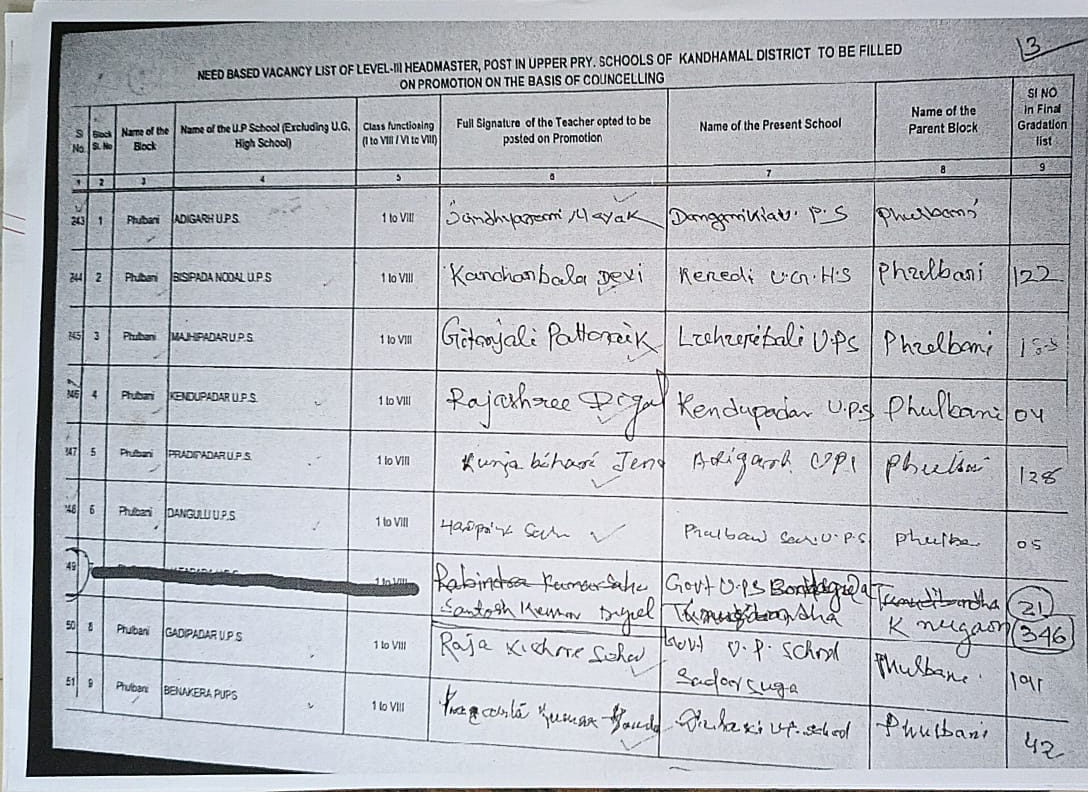 13
NEED BASED VACANCY LIST OF LEVEL-III HEADMASTER, POST IN UPPER PRY. SCHOOLS OF KANDHAMAL DISTRICT TO BE FILLED
ON PROMOTION ON THE BASIS OF COUNCELLING
Sl No | Block Sl. No | Name of the Block | Name of the U.P School (Excluding U.G. High School) | Class functioning (I to VIII / VI to VIII) | Full Signature of the Teacher opted to be posted on Promotion | Name of the Present School | Name of the Parent Block | Sl NO in Final Gradation list
1 2 3 4 5 6 7 8 9
243 1 Phulbani ADIGARH U.P.S. 1 to VIII Nayak P.S Phulbani
244 2 Phulbani BISIPADA NODAL U.P.S 1 to VIII Kanchanbala Devi Keredi U.G.H.S Phulbani 122
245 3 Phulbani MAJHIPADAR U.P.S. 1 to VIII Gitanjali Pattanaik U.P.S Phulbani
246 4 Phulbani KENDUPADAR U.P.S. 1 to VIII Rajashree Digal Kendupadar U.P.S Phulbani 04
247 5 Phulbani PRADIPADAR U.P.S. 1 to VIII Kunja bihari Jena Adigarh UPS Phulbani 128
248 6 Phulbani DANGULU U.P.S. 1 to VIII U.P.S 05
49 1 to VIII Rabindra Kumar Sahu Govt U.P.S 21
Santosh Kumar Digal K nugaon 346
50 8 Phulbani GADIPADAR U.P.S 1 to VIII Raja Kishore Govt U.P. School Phulbani 191
51 9 Phulbani BENAKERA PUPS 1 to VIII Kumar School Phulbani 42